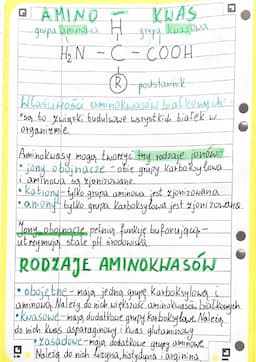 AMINO – KWAS
grupa aminowa H grupa kwasowa
H₂N – C – COOH
R podstawnik
Właściwości aminokwasów białkowych:
• są to związki budulcowe wszystkich białek w
organizmie.
Aminokwasy mogą tworzyć trzy rodzaje jonów:
• jony obojnacze - obie grupy karboksylowa
i aminowa są zjonizowane.
• kationy - tylko grupa aminowa jest zjonizowana
• aniony - tylko grupa karboksylowa jest zjonizowana.
Jony obojnacze pełnią funkcję buforującą -
utrzymują stałe pH środowiska
RODZAJE AMINOKWASÓW
• obojętne - mają jedną grupę karboksylową i
aminową. Należy do nich większość aminokwasów białkowych.
• kwasowe - mają dodatkowe grupy karboksylowe. Należą
do nich kwas asparaginowy i kwas glutaminowy
• zasadowe - mają dodatkowe grupy aminowe.
Należą do nich lizyna, histydyna i arginina.